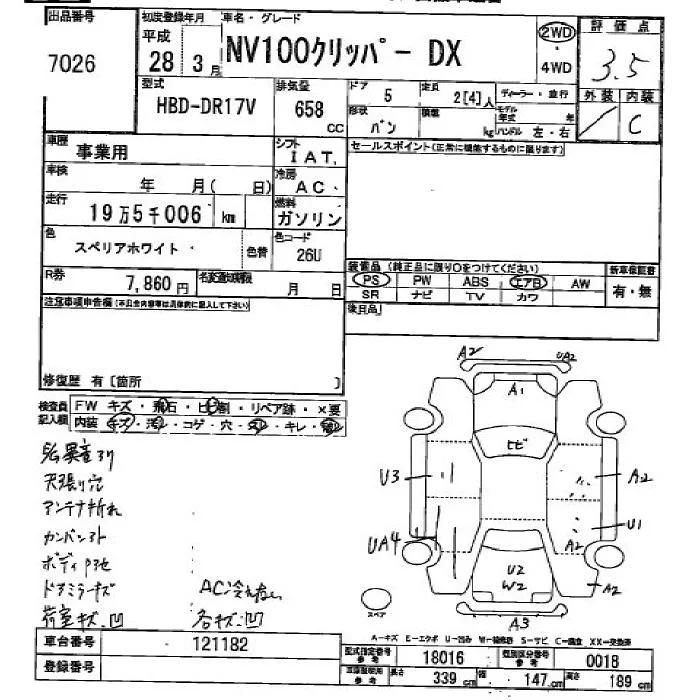 出品番号 初度登録年月 車名・グレード 2WD 評価点
7026 平成 28 3月 NV100クリッパー DX 4WD 3.5
型式 排気量 ドア 5 定員 2[4]人 ディーラー・並行 外装 内装
HBD-DR17V 658 CC 形状 バン 積載 kg モデル年式 年 ハンドル 左・右 C
車歴 事業用 シフト IAT. セールスポイント(正常に機能するものに限ります)
車検 年 月( 日) 冷房 AC
走行 19万5千006 km 燃料 ガソリン
色 スペリアホワイト 色替 色コード 26U
R券 7,860円 名変期限 月 日
装備品 (純正品に限り○をつけてください) 新車保証書
PS PW ABS エアB AW 有・無
SR ナビ TV カワ
注意事項申告欄
後日品
修復歴 有[箇所 ]
検査員記入欄 FW キズ・飛石・ヒビ割・リペア跡・×要
内装 キズ・汚レ・コゲ・穴・スレ・キレ
A2 UA2
A1
ヒビ
U3 A2
UA4 U1
A2
U2
W2 A2
スペア A3
天張り穴
アンテナ折れ
カンバン跡
ドアミラーキズ AC冷えなし
荷室キズ凹 各キズ凹
A-キズ E-エクボ U-凹み W-補修跡 S-サビ C-腐食 XX-交換済
車台番号 121182 型式指定番号 参考 18016 類別区分番号 参考 0018
登録番号 参考 長さ 339cm 幅 147cm 高さ 189cm